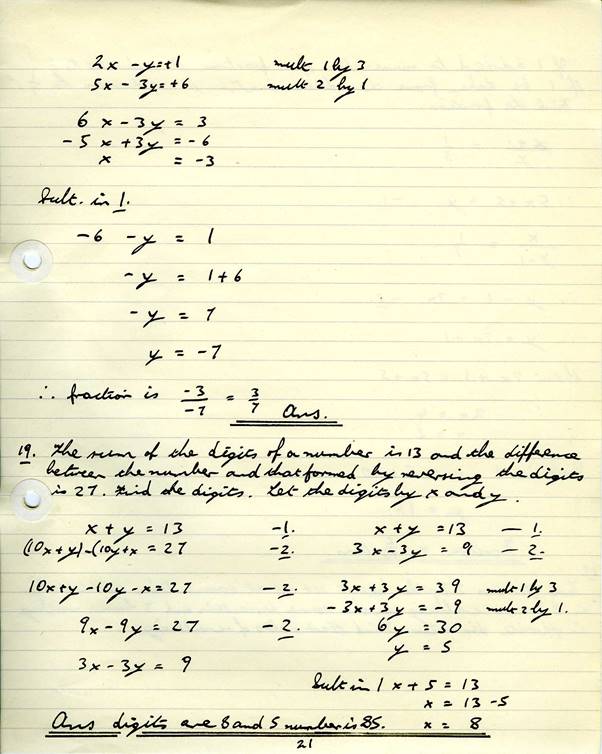 2x - y = +1 mult 1 by 3
5x - 3y = +6 mult 2 by 1
6x - 3y = 3
-5x + 3y = -6
x = -3
Subt. in 1.
-6 - y = 1
-y = 1 + 6
-y = 7
y = -7
∴ fraction is -3/-7 = 3/7 Ans.
19. The sum of the digits of a number is 13 and the difference
between the number and that formed by reversing the digits
is 27. Find the digits. Let the digits by x and y.
x + y = 13 -1.
(10x+y)-(10y+x = 27 -2.
10x+y-10y-x = 27 -2.
9x - 9y = 27 -2.
3x - 3y = 9
x + y = 13 -1.
3x - 3y = 9 -2.
3x + 3y = 39 mult 1 by 3
-3x + 3y = -9 mult 2 by 1.
6y = 30
y = 5
Subt in 1 x + 5 = 13
x = 13 - 5
x = 8
Ans digits are 8 and 5 number is 85.
21